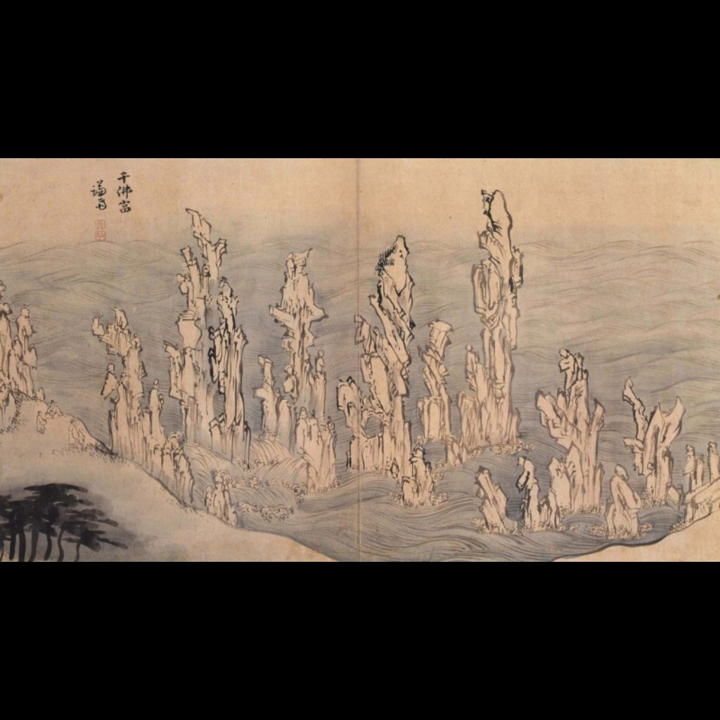 千佛嵓
謙齋